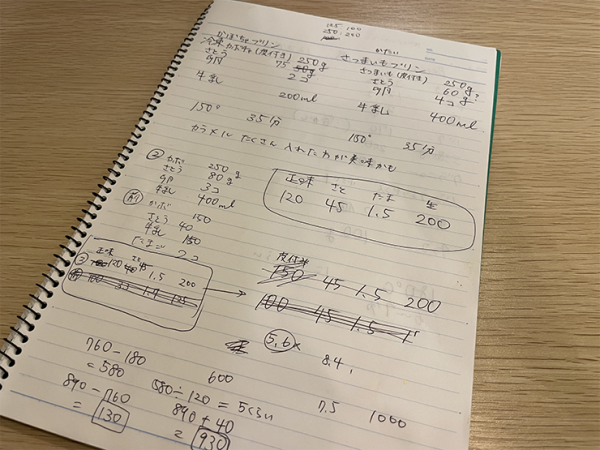 125 100
250 200
かぼちゃプリン
冷凍カボチャ(皮付き) 250g
さとう 75 50g
タマゴ 2コ
牛乳 200ml
150° 35分
かたい
さつまいもプリン
さつまいも(皮付き) 250g
さとう 60g?
タマゴ 4コ
牛乳 400ml
150° 35分
カラメル たくさん 入れた方が美味かも
② カボ 250g
さとう 80g
タマゴ 3コ
牛乳 400ml
カボ 150
さとう 40
牛乳 150
たまご 2コ
正味 さと たま 牛
120 45 1.5 200
正味 さと
120 40 45 1.5 200
100 33 1.7 125
皮付き
150 45 1.5 200
100 45 1.5 1
5,6x
8.4,
760-180
=580
600
580÷120=5くらい
890-760
=130
890+40
=930
7.5 1000